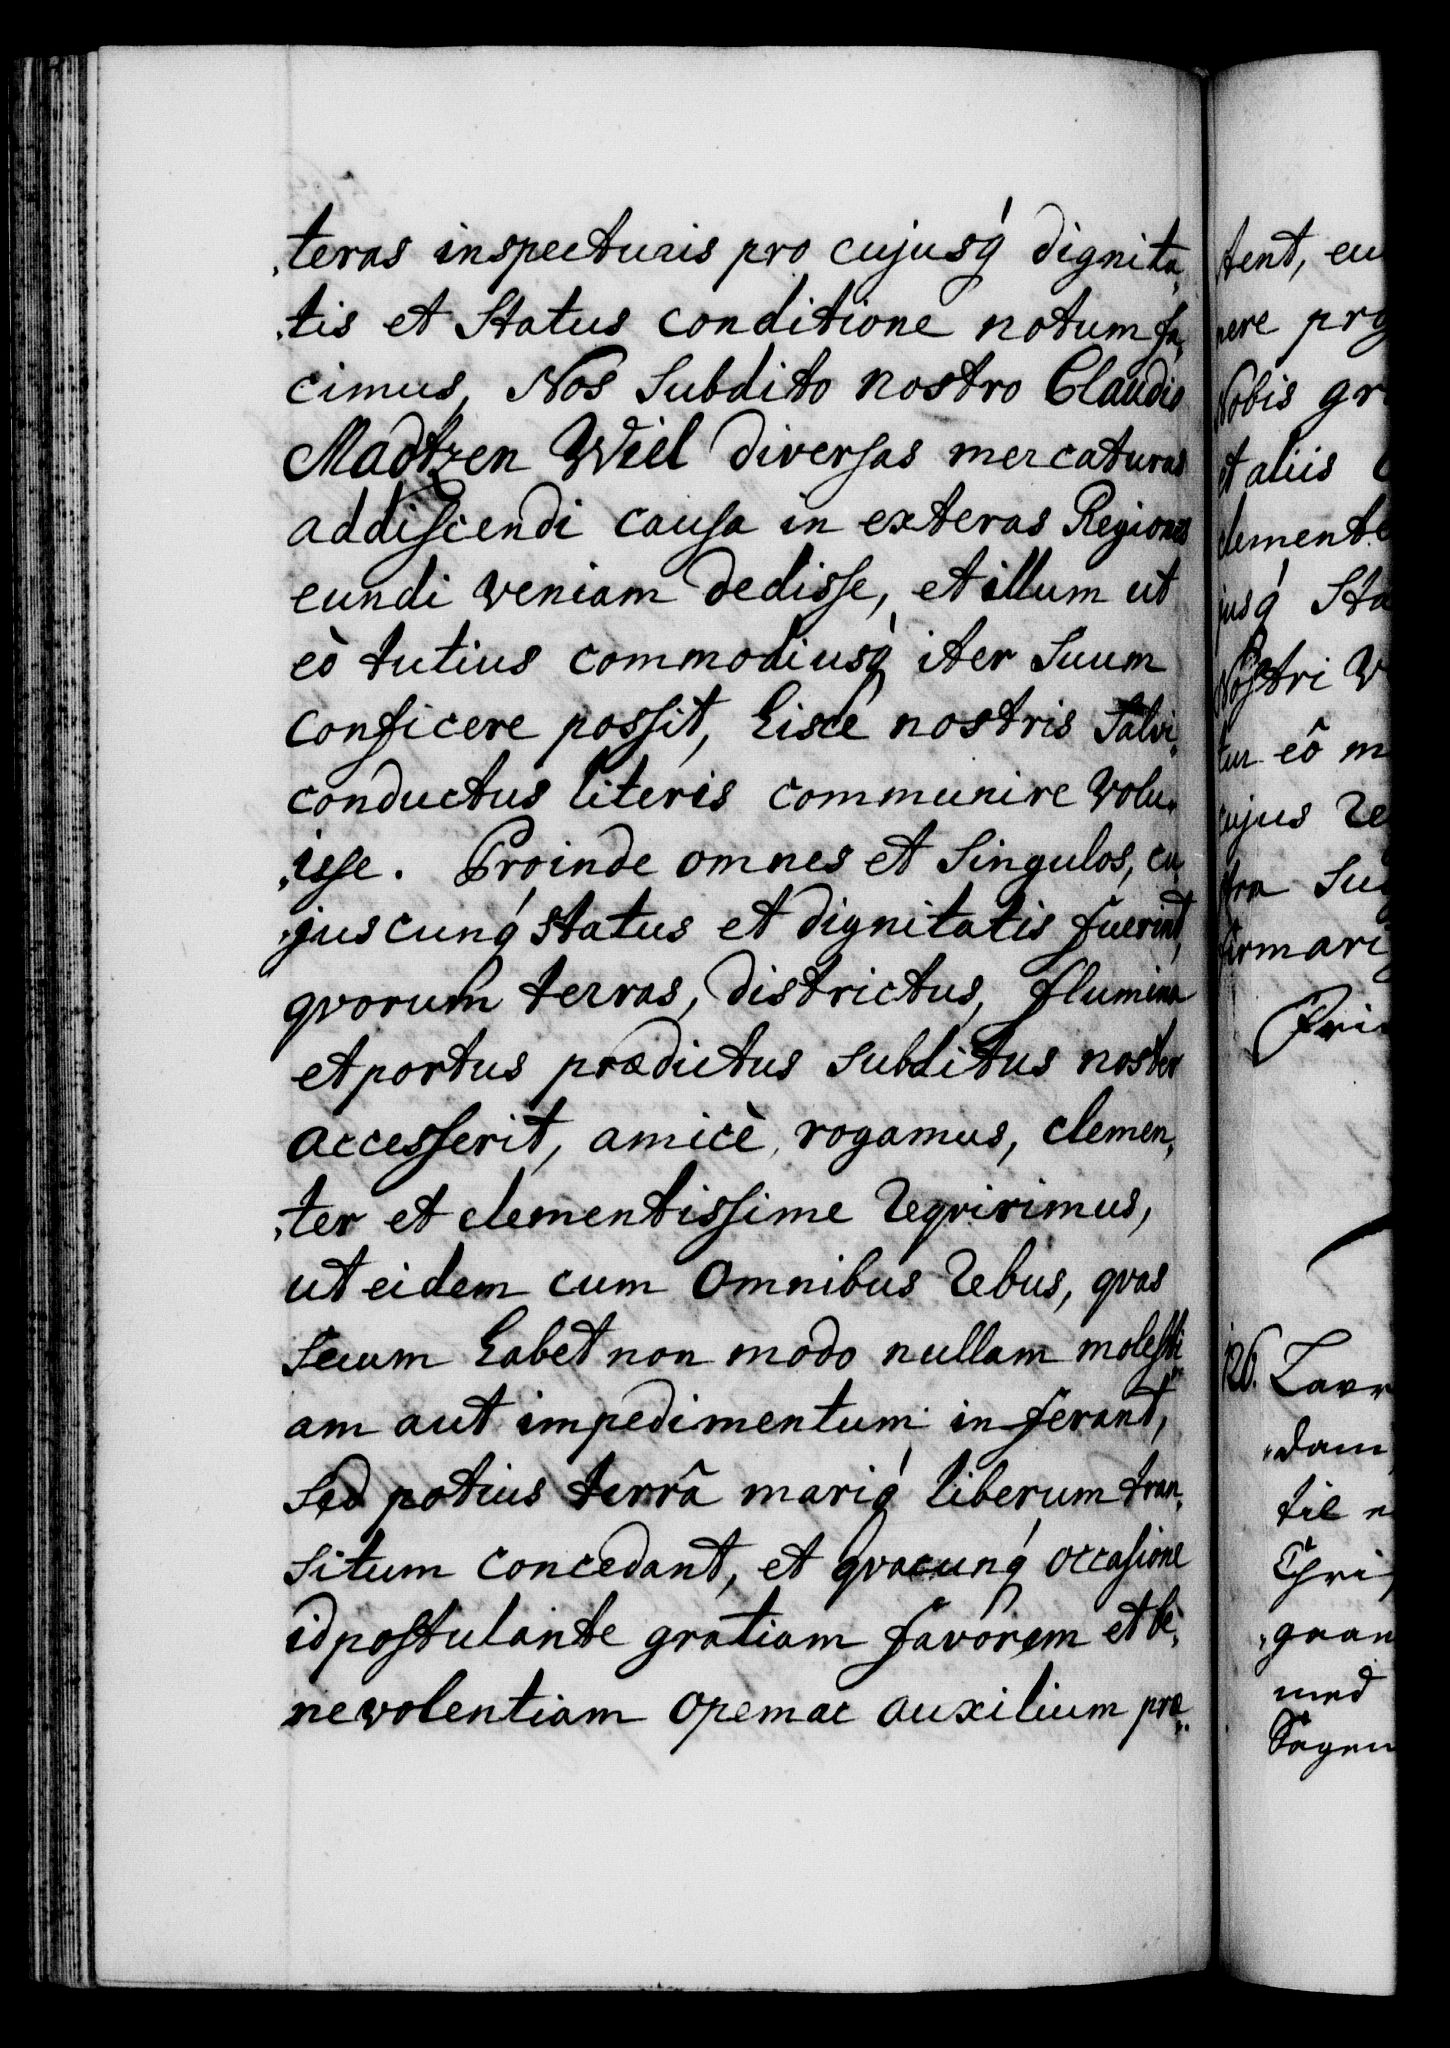 ,teras inspecturis pro cujusq́ dignita,
,tis et Status conditione notum fa,
cimus, Nos Subdito nostro Claudio
Madtzen Wiel diversas mercaturas
addiscendi causa in exteras Regiones
eundi veniam dedisse, et illum ut
eò tutius commodiusq́ iter Suum
conficere possit, hisce nostris Salvi,
conductus literis communire volu,
,isse. Proinde omnes et Singulos, cu,
,juscunq́ status et dignitatis fuerint,
qvorum terras, districtus, flumina
et portus prædictus subditus noster
accesserit, amicè, rogamus, clemen,
,ter et clementissime reqvirimus,
ut eidem cum omnibus rebus, qvas
Secum habet non modo nullam molesti,
am aut impedimentum inferant,
Sed potius terrâ mariq́ liberum tran,
situm concedant, et qvacunq́ occasione
id postulante gratiam favorem et be,
nevolentiam opem ac auxilium præ,
tent, eu
pere pro
Nobis gr
et aliis
clemente
jusq́ Sta
Nostri V
tur eô m
cujus re
tra Su
firmari
Fri
126. Laur
,dam
til
Chri
,gaan
med